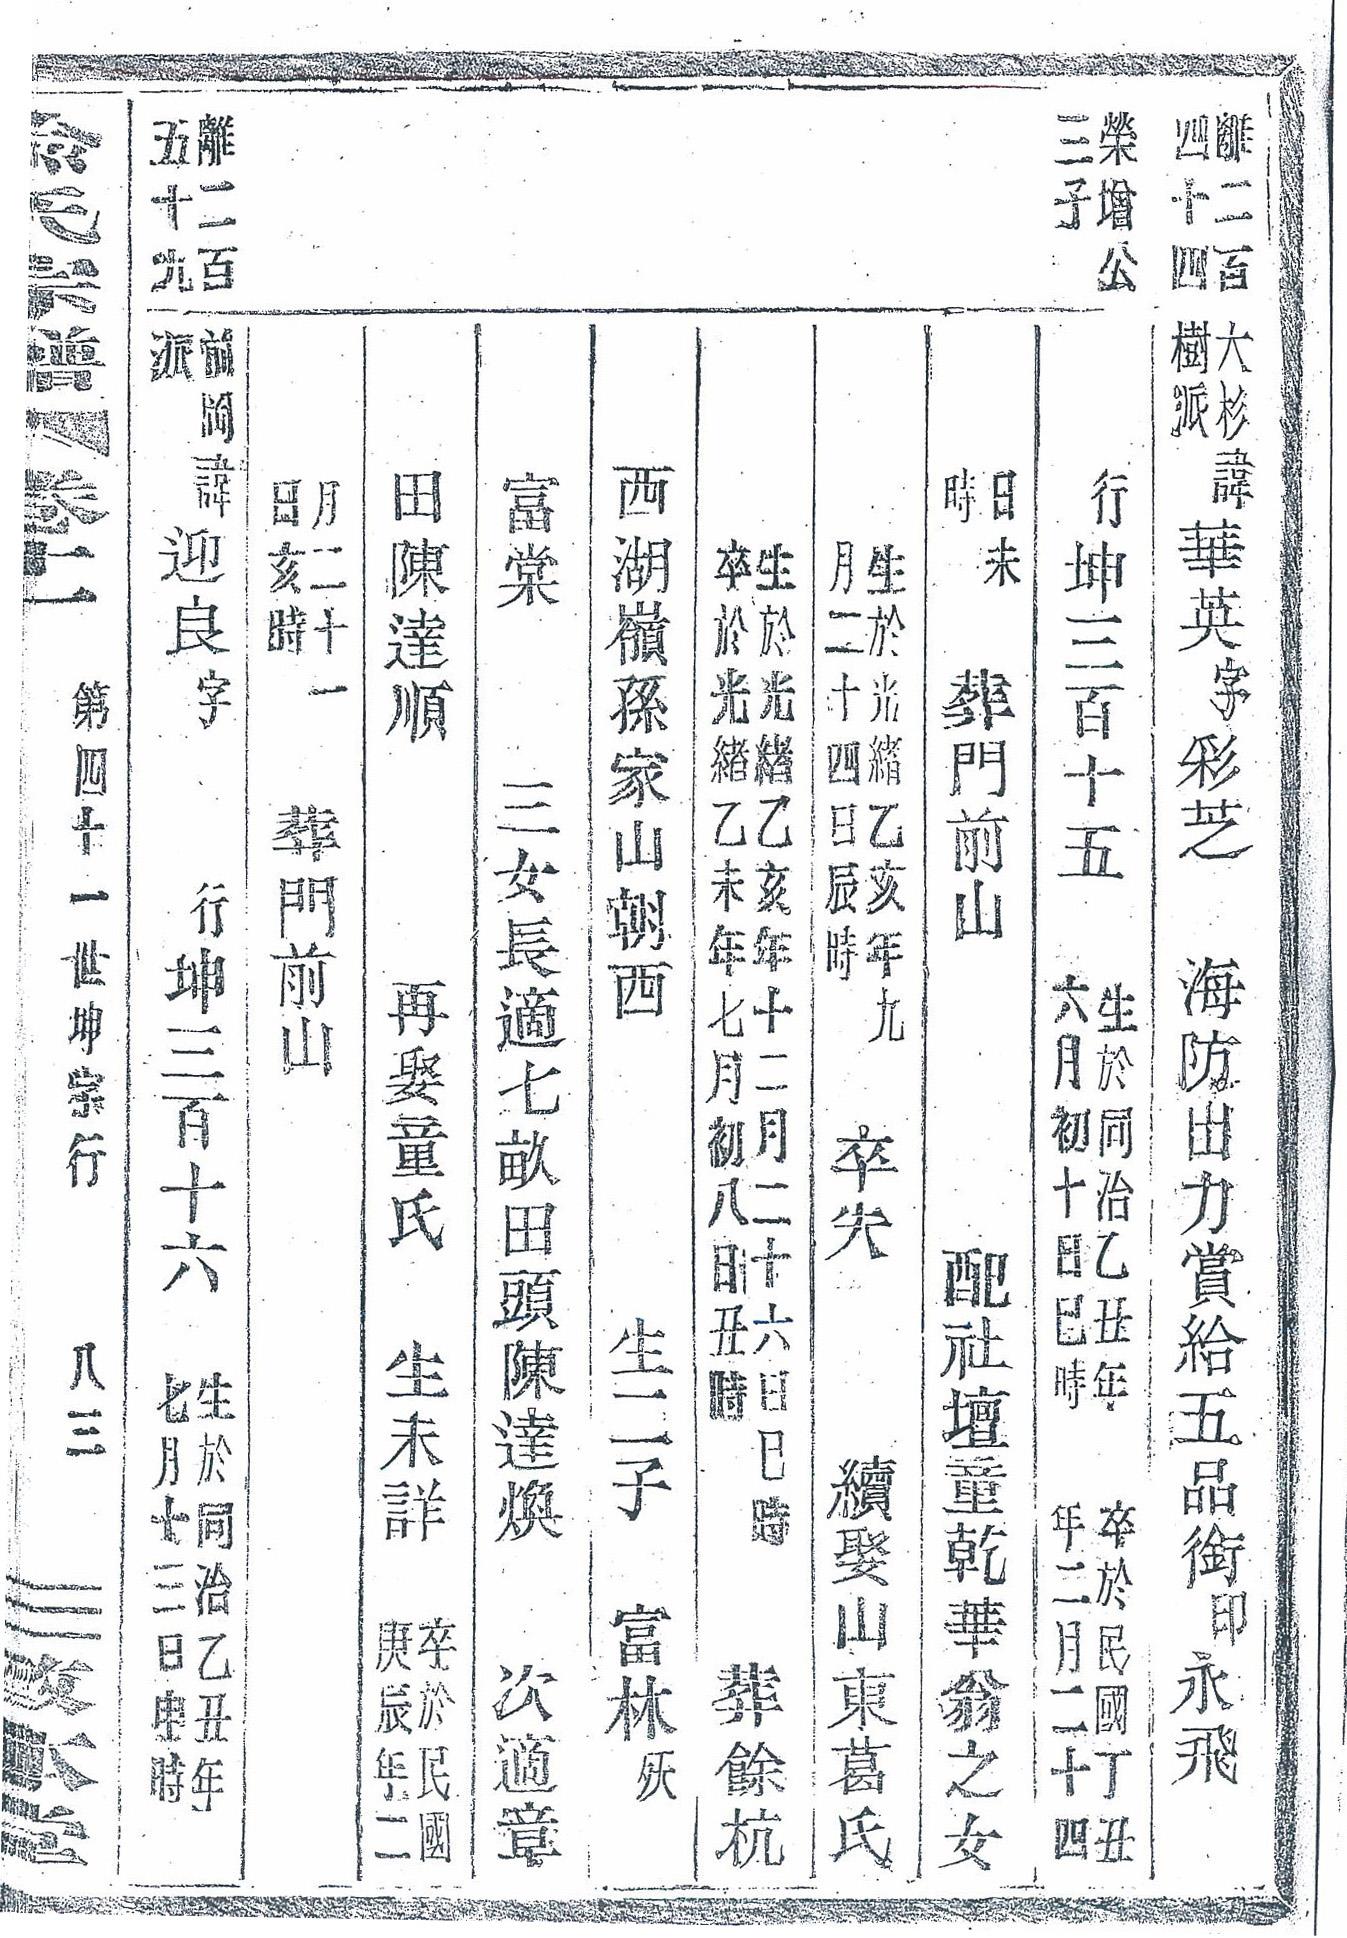 離二百
四十四
大杉
樹派
諱華英字彩芝 海防出力賞給五品銜印永飛
榮增公
三子
行坤三百十五
生於同治乙丑年
六月初十日巳時
卒於民國丁丑
年二月二十四
日未
時
葬門前山 配社壇童乾華翁之女
生於光緒乙亥年九
月二十四日辰時
卒失 續娶山東葛氏
生於光緒乙亥年十二月二十六日巳時
卒於光緒乙未年七月初八日丑時
葬餘杭
西湖嶺孫家山朝西 生二子 富林
富棠 三女長適七畝田頭陳達煥 次適章
田陳達順 再娶童氏 生未詳
卒於民國
庚辰年二
月二十一
日亥時
葬門前山
離二百
五十九
前岡
派
諱迎良字 行坤三百十六
生於同治乙丑年
七月十三日申時
氏宗譜 卷二 第四十一世坤字行 八三 敦本堂